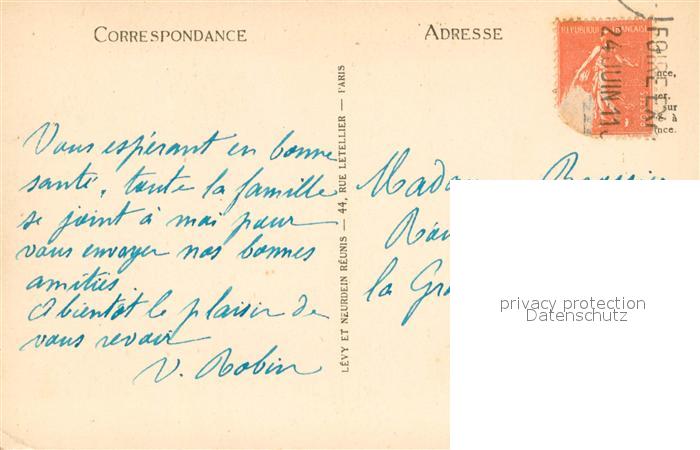 CORRESPONDANCE
ADRESSE
REPUBLIQUE FRANÇAISE
POSTES
24 JUIN 11
nce,
ser.
sur
à
nce.
Vous espérant en bonne
santé, toute la famille
se joint à moi pour
vous envoyer nos bonnes
amitiés
A bientôt le plaisir de
vous revoir
V. Robin
LÉVY ET NEURDEIN RÉUNIS — 44, RUE LETELLIER — PARIS
la
privacy protection
Datenschutz